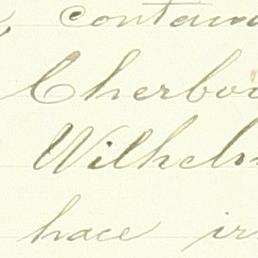 contain
Cherbou
Wilhelm
hace in